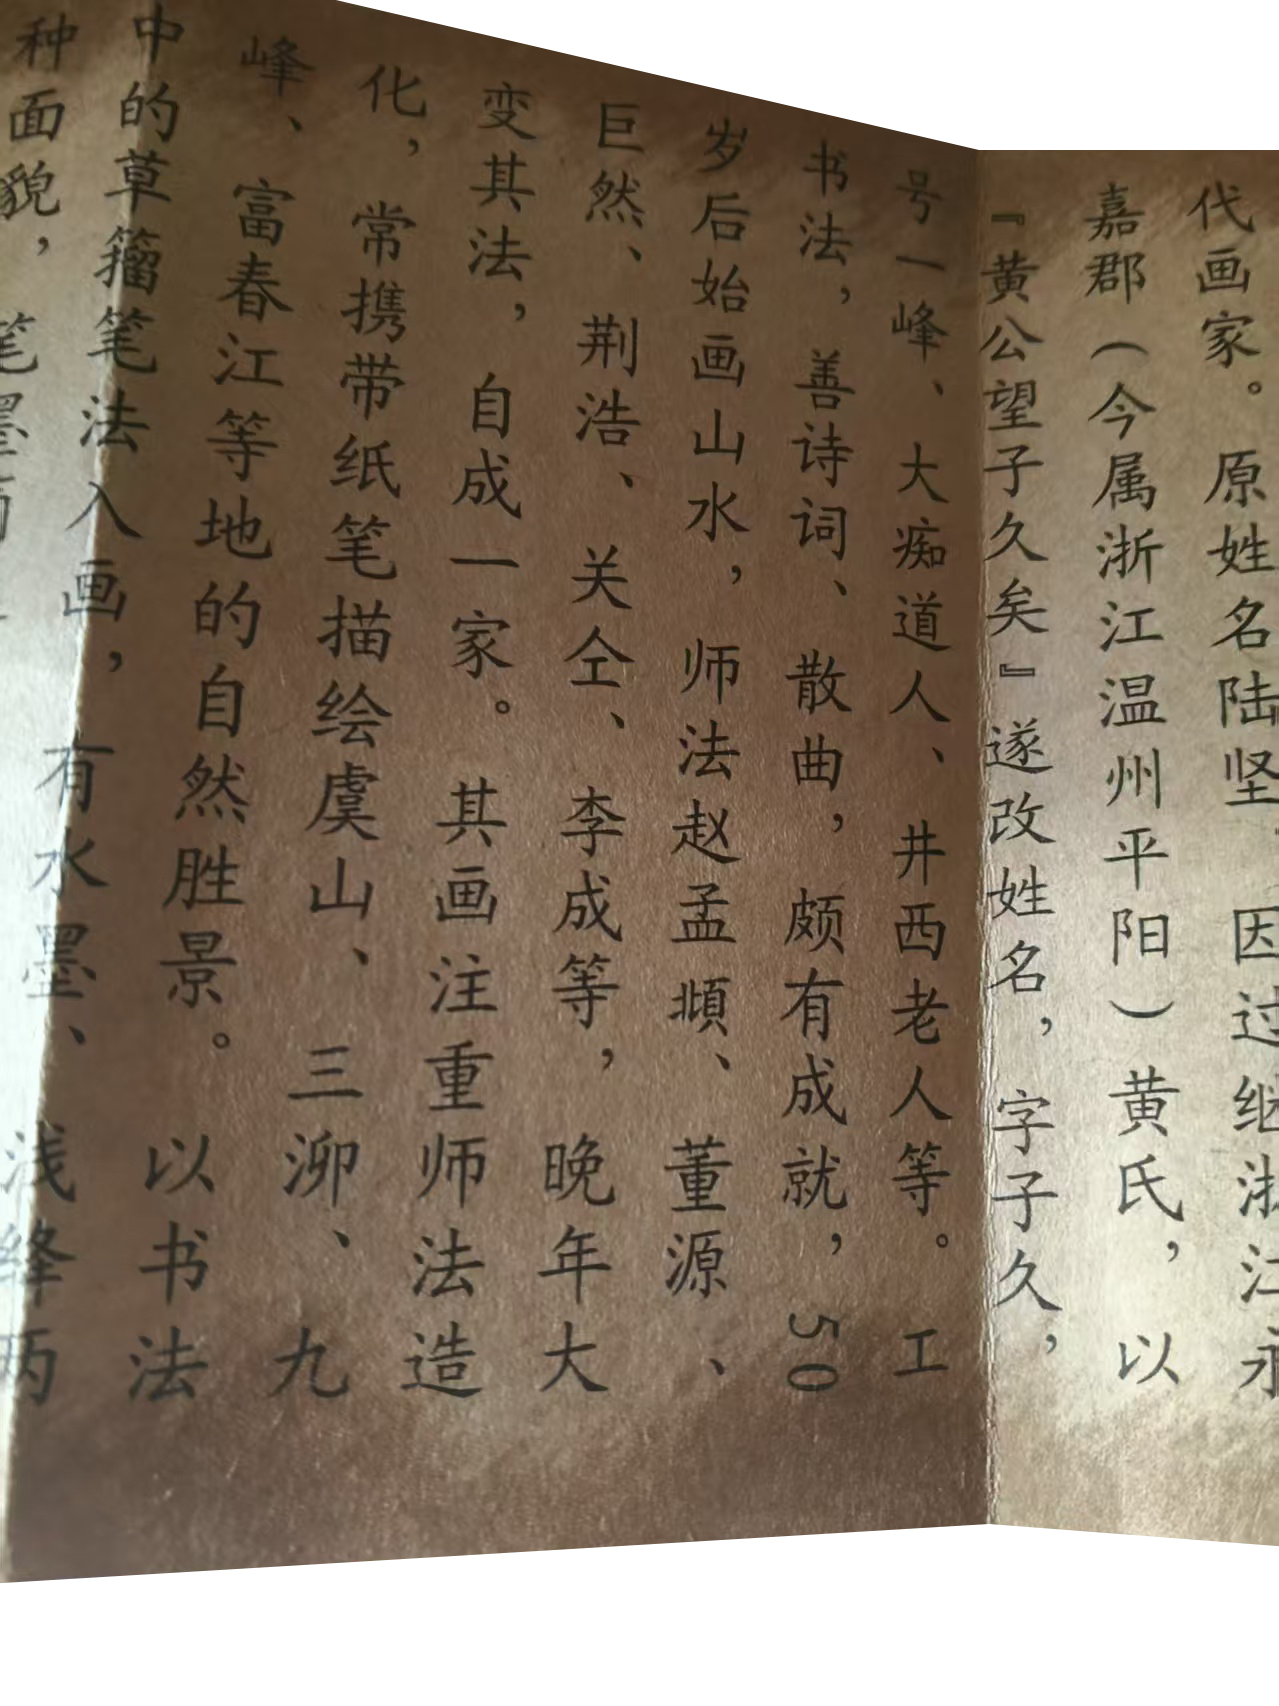 代画家。原姓名陆坚,因过继浙江永
嘉郡(今属浙江温州平阳)黄氏,以
『黄公望子久矣』遂改姓名,字子久,
号一峰、大痴道人、井西老人等。工
书法,善诗词、散曲,颇有成就,50
岁后始画山水,师法赵孟頫、董源、
巨然、荆浩、关仝、李成等,晚年大
变其法,自成一家。其画注重师法造
化,常携带纸笔描绘虞山、三泖、九
峰、富春江等地的自然胜景。以书法
中的草籀笔法入画,有水墨、浅绛两
种面貌,笔墨